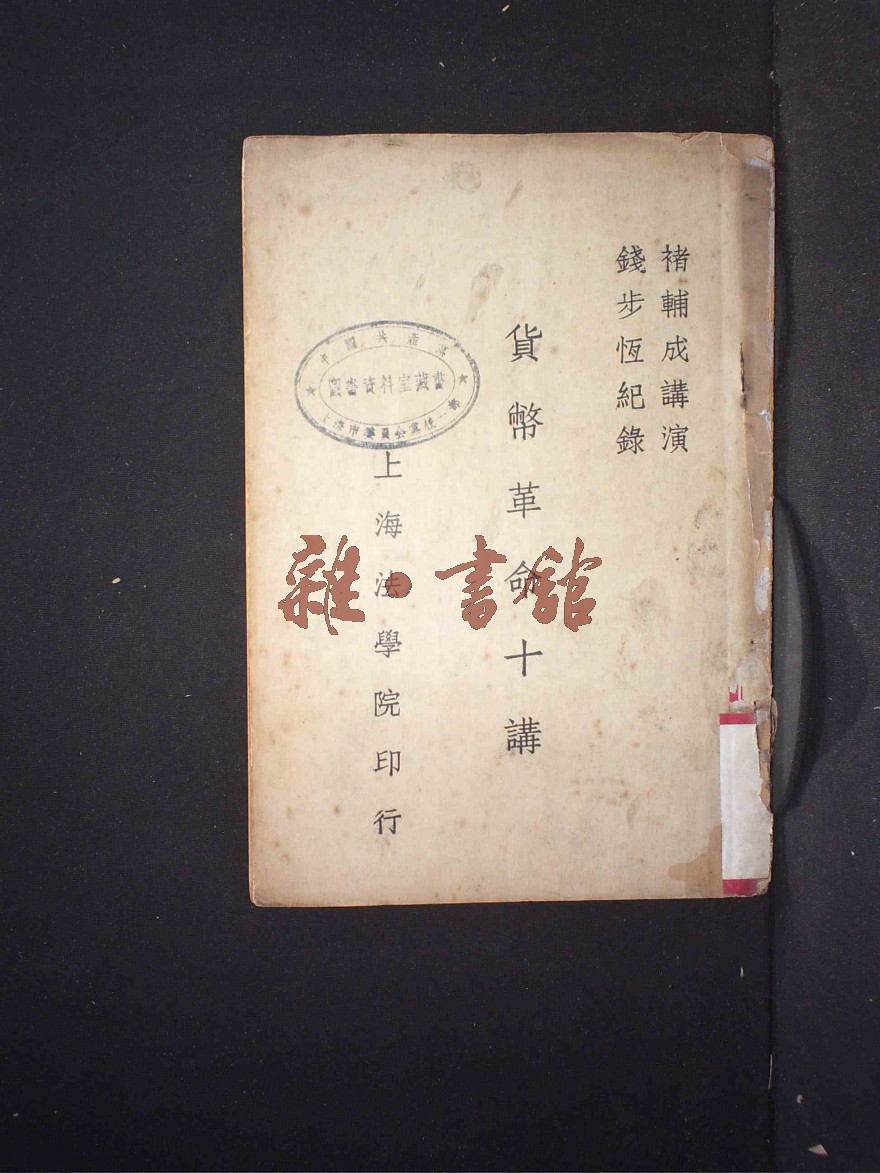 褚輔成講演
錢步恆紀錄
貨幣革命十講
上海法學院印行
中國共產黨
圖書資料室藏書
上海市委員會黨校一部
雜·書館